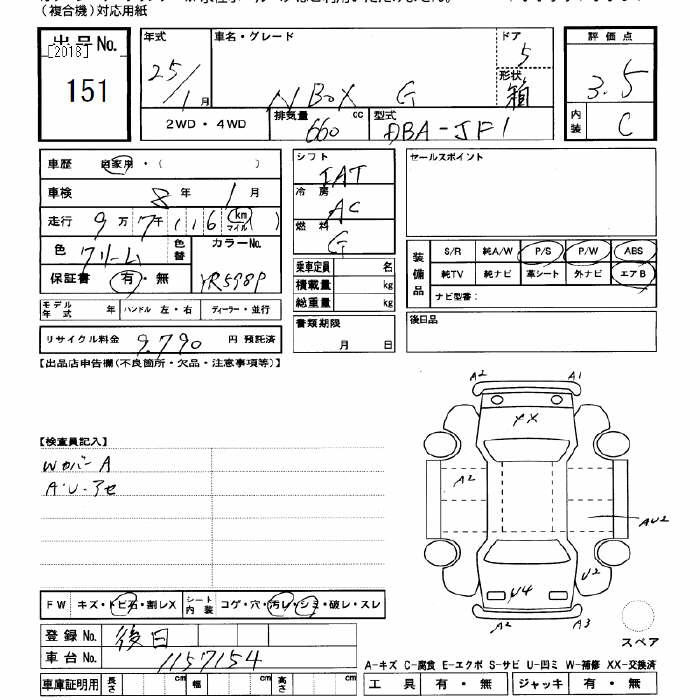 （複合機）対応用紙
出品No.
[2018]
151
年式
25/1月
車名・グレード
N BOX G
ドア
5
形状
箱
評価点
3.5
内装
C
2WD・4WD
排気量
660 cc
型式
DBA-JF1
車歴 自家用・( )
車検 8年 1月
走行 9万7千116 km マイル ( )
色 クリーム
色替
カラーNo.
YR598P
保証書 有・無
モデル年式 年
ハンドル 左・右
ディーラー・並行
リサイクル料金 9,790 円 預託済
シフト
IAT
冷房
AC
燃料
G
乗車定員 名
積載量 kg
総重量 kg
書類期限
月 日
セールスポイント
装備品
S/R 純A/W P/S P/W ABS
純TV 純ナビ 革シート 外ナビ エアB
ナビ型番：
後日品
【出品店申告欄(不良箇所・欠品・注意事項等)】
【検査員記入】
Wカバー A
A・U・アセ
A2 A1
A2
AU2
U2
U4
A2 A3
スペア
FW キズ・トビ石・割レX
シート内装 コゲ・穴・汚レ・シミ・破レ・スレ
登録No. 後日
車台No. 1157154
A-キズ C-腐食 E-エクボ S-サビ U-凹ミ W-補修 XX-交換済
車庫証明用 長さ cm 幅 cm 高さ cm
工具 有・無 ジャッキ 有・無